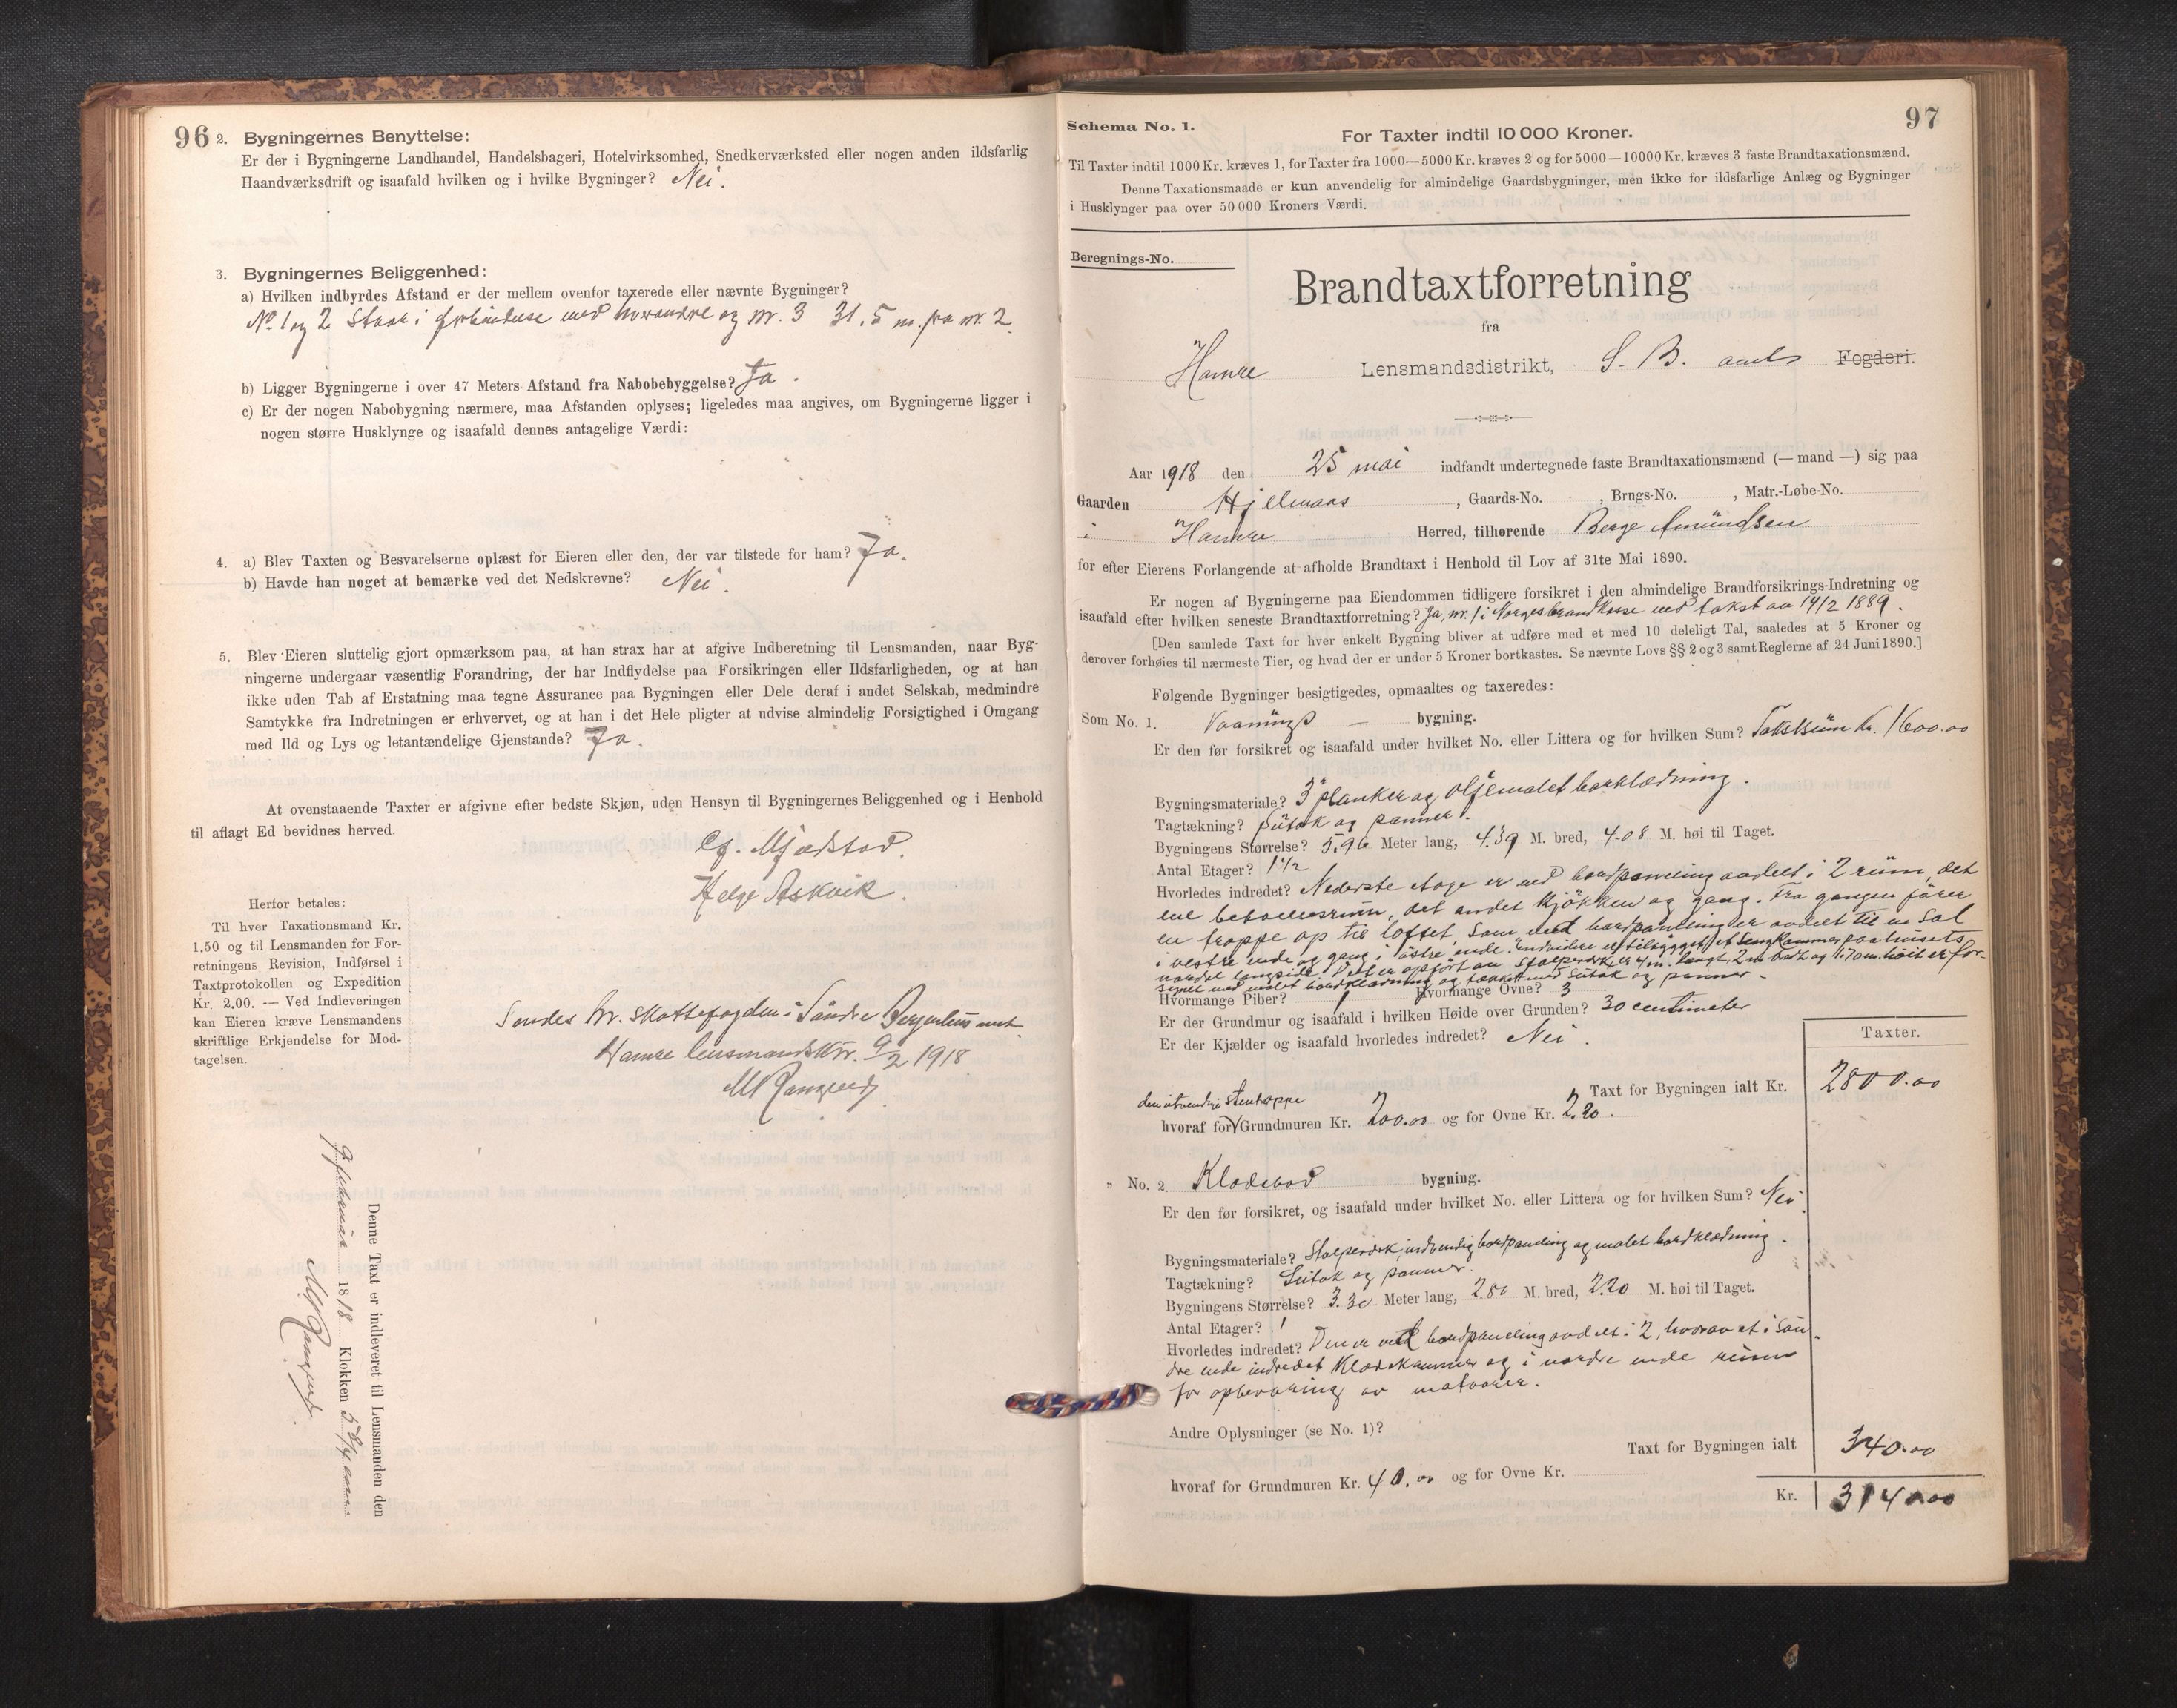 96
2. Bygningernes Benyttelse:
Er der i Bygningerne Landhandel, Handelsbageri, Hotelvirksomhed, Snedkerværksted eller nogen anden ildsfarlig
Haandværksdrift og isaafald hvilken og i hvilke Bygninger? Nei.
3. Bygningernes Beliggenhed:
a) Hvilken indbyrdes Afstand er der mellem ovenfor taxerede eller nævnte Bygninger?
No. 1 og 2 Staar i forbindelse med hverandre og nr. 3 31.5 m. fra nr. 2
b) Ligger Bygningerne i over 47 Meters Afstand fra Nabobebyggelse? Ja.
c) Er der nogen Nabobygning nærmere, maa Afstanden oplyses; ligeledes maa angives, om Bygningerne ligger i
nogen større Husklynge og isaafald dennes antagelige Værdi:
4. a) Blev Taxten og Besvarelserne oplæst for Eieren eller den, der var tilstede for ham? Ja.
b) Havde han noget at bemærke ved det Nedskrevne? Nei.
5. Blev Eieren sluttelig gjort opmærksom paa, at han strax har at afgive Indberetning til Lensmanden, naar Byg-
ningerne undergaar væsentlig Forandring, der har Indflydelse paa Forsikringen eller Ildsfarligheden, og at han
ikke uden Tab af Erstatning maa tegne Assurance paa Bygningen eller Dele deraf i andet Selskab, medmindre
Samtykke fra Indretningen er erhvervet, og at han i det Hele pligter at udvise almindelig Forsigtighed i Omgang
med Ild og Lys og letantændelige Gjenstande? Ja.
At ovenstaaende Taxter er afgivne efter bedste Skjøn, uden Hensyn til Bygningernes Beliggenhed og i Henhold
til aflagt Ed bevidnes herved.
Mjedstad.
Helge Askvik
Herfor betales:
Til hver Taxationsmand Kr.
1.50 og til Lensmanden for For-
retningens Revision, Indførsel i
Taxtprotokollen og Expedition
Kr. 2.00. — Ved Indleveringen
kan Eieren kræve Lensmandens
skriftlige Erkjendelse for Mod-
tagelsen.
Sendes hr. skattefogden i Söndre Bergenhus amt
Hamre lensmandsktr. 9/2 1918
Denne Taxt er indleveret til Lensmanden den
9 februar 1818 Klokken 5
97
Schema No. 1.
For Taxter indtil 10 000 Kroner.
Til Taxter indtil 1000 Kr. kræves 1, for Taxter fra 1000—5000 Kr. kræves 2 og for 5000—10000 Kr. kræves 3 faste Brandtaxationsmænd.
Denne Taxationsmaade er kun anvendelig for almindelige Gaardsbygninger, men ikke for ildsfarlige Anlæg og Bygninger
i Husklynger paa over 50 000 Kroners Værdi.
Beregnings-No.
Brandtaxtforretning
fra
Hamre Lensmandsdistrikt, S. B. amts Fogderi.
Aar 1918 den 25 mai indfandt undertegnede faste Brandtaxationsmænd (— mand —) sig paa
Gaarden Hjelmaas, Gaards-No. , Brugs-No. , Matr.-Løbe-No.
i Hamre Herred, tilhørende Berge Amundsen
for efter Eierens Forlangende at afholde Brandtaxt i Henhold til Lov af 31te Mai 1890.
Er nogen af Bygningerne paa Eiendommen tidligere forsikret i den almindelige Brandforsikrings-Indretning og
isaafald efter hvilken seneste Brandtaxtforretning? Ja, nr. 1 i Norges brandkasse ved takst av 14/2 1889.
[Den samlede Taxt for hver enkelt Bygning bliver at udføre med et med 10 deleligt Tal, saaledes at 5 Kroner og
derover forhøies til nærmeste Tier, og hvad der er under 5 Kroner bortkastes. Se nævnte Lovs §§ 2 og 3 samt Reglerne af 24 Juni 1890.]
Følgende Bygninger besigtigedes, opmaaltes og taxeredes:
Som No. 1. Vaanings — bygning.
Er den før forsikret og isaafald under hvilket No. eller Littera og for hvilken Sum? Takstsum kr. 1600.00
Bygningsmateriale? 3" planker og oljemalet bordklædning.
Tagtækning? Sutak og panner.
Bygningens Størrelse? 5.96 Meter lang, 4.39 M. bred, 4.08 M. høi til Taget.
Antal Etager? 1 1/2
Hvorledes indredet? Nederste etage er ved bordpaneling avdelt i 2 rum, det
ene beboelsesrum, det andet kjökken og gang. Fra gangen förer
en trappe op til loftet, som ved bordpaneling er avdelt til en Sal
i vestre ende og gang i östre ende. Endvidere er tilbygget et Sengkammer paa husets
nordre langside. Det er opfört av Stolperverk, er 4 m. langt, 2 m bredt og 1.70 m. höit er for-
synet med malet bordklædning og tækket med Sutak og panner.
Hvormange Piber? 1 Hvormange Ovne? 3
Er der Grundmur og isaafald i hvilken Høide over Grunden? 30 centimeter
Er der Kjælder og isaafald hvorledes indredet? Nei.
Taxter.
Taxt for Bygningen ialt Kr. 2800.00
den utvendige stentrappe
hvoraf for Grundmuren Kr. 200.00 og for Ovne Kr. 2.20.
" No. 2 Klædebod bygning.
Er den før forsikret, og isaafald under hvilket No. eller Littera og for hvilken Sum? Nei.
Bygningsmateriale? Stolperverk, indvendig bordpaneling og malet bordklædning.
Tagtækning? Sutak og panner.
Bygningens Størrelse? 3.30 Meter lang, 2.80 M. bred, 2.20 M. høi til Taget.
Antal Etager? 1
Hvorledes indredet? Den er ved bordpaneling avdelt i 2, hvorav et i Sön-
dre ende indredet Klædekammer og i nordre ende rum
for opbevaring av matvarer.
Andre Oplysninger (se No. 1)?
Taxt for Bygningen ialt 340.00
hvoraf for Grundmuren Kr. 40.00 og for Ovne Kr.
Kr. 3140.00